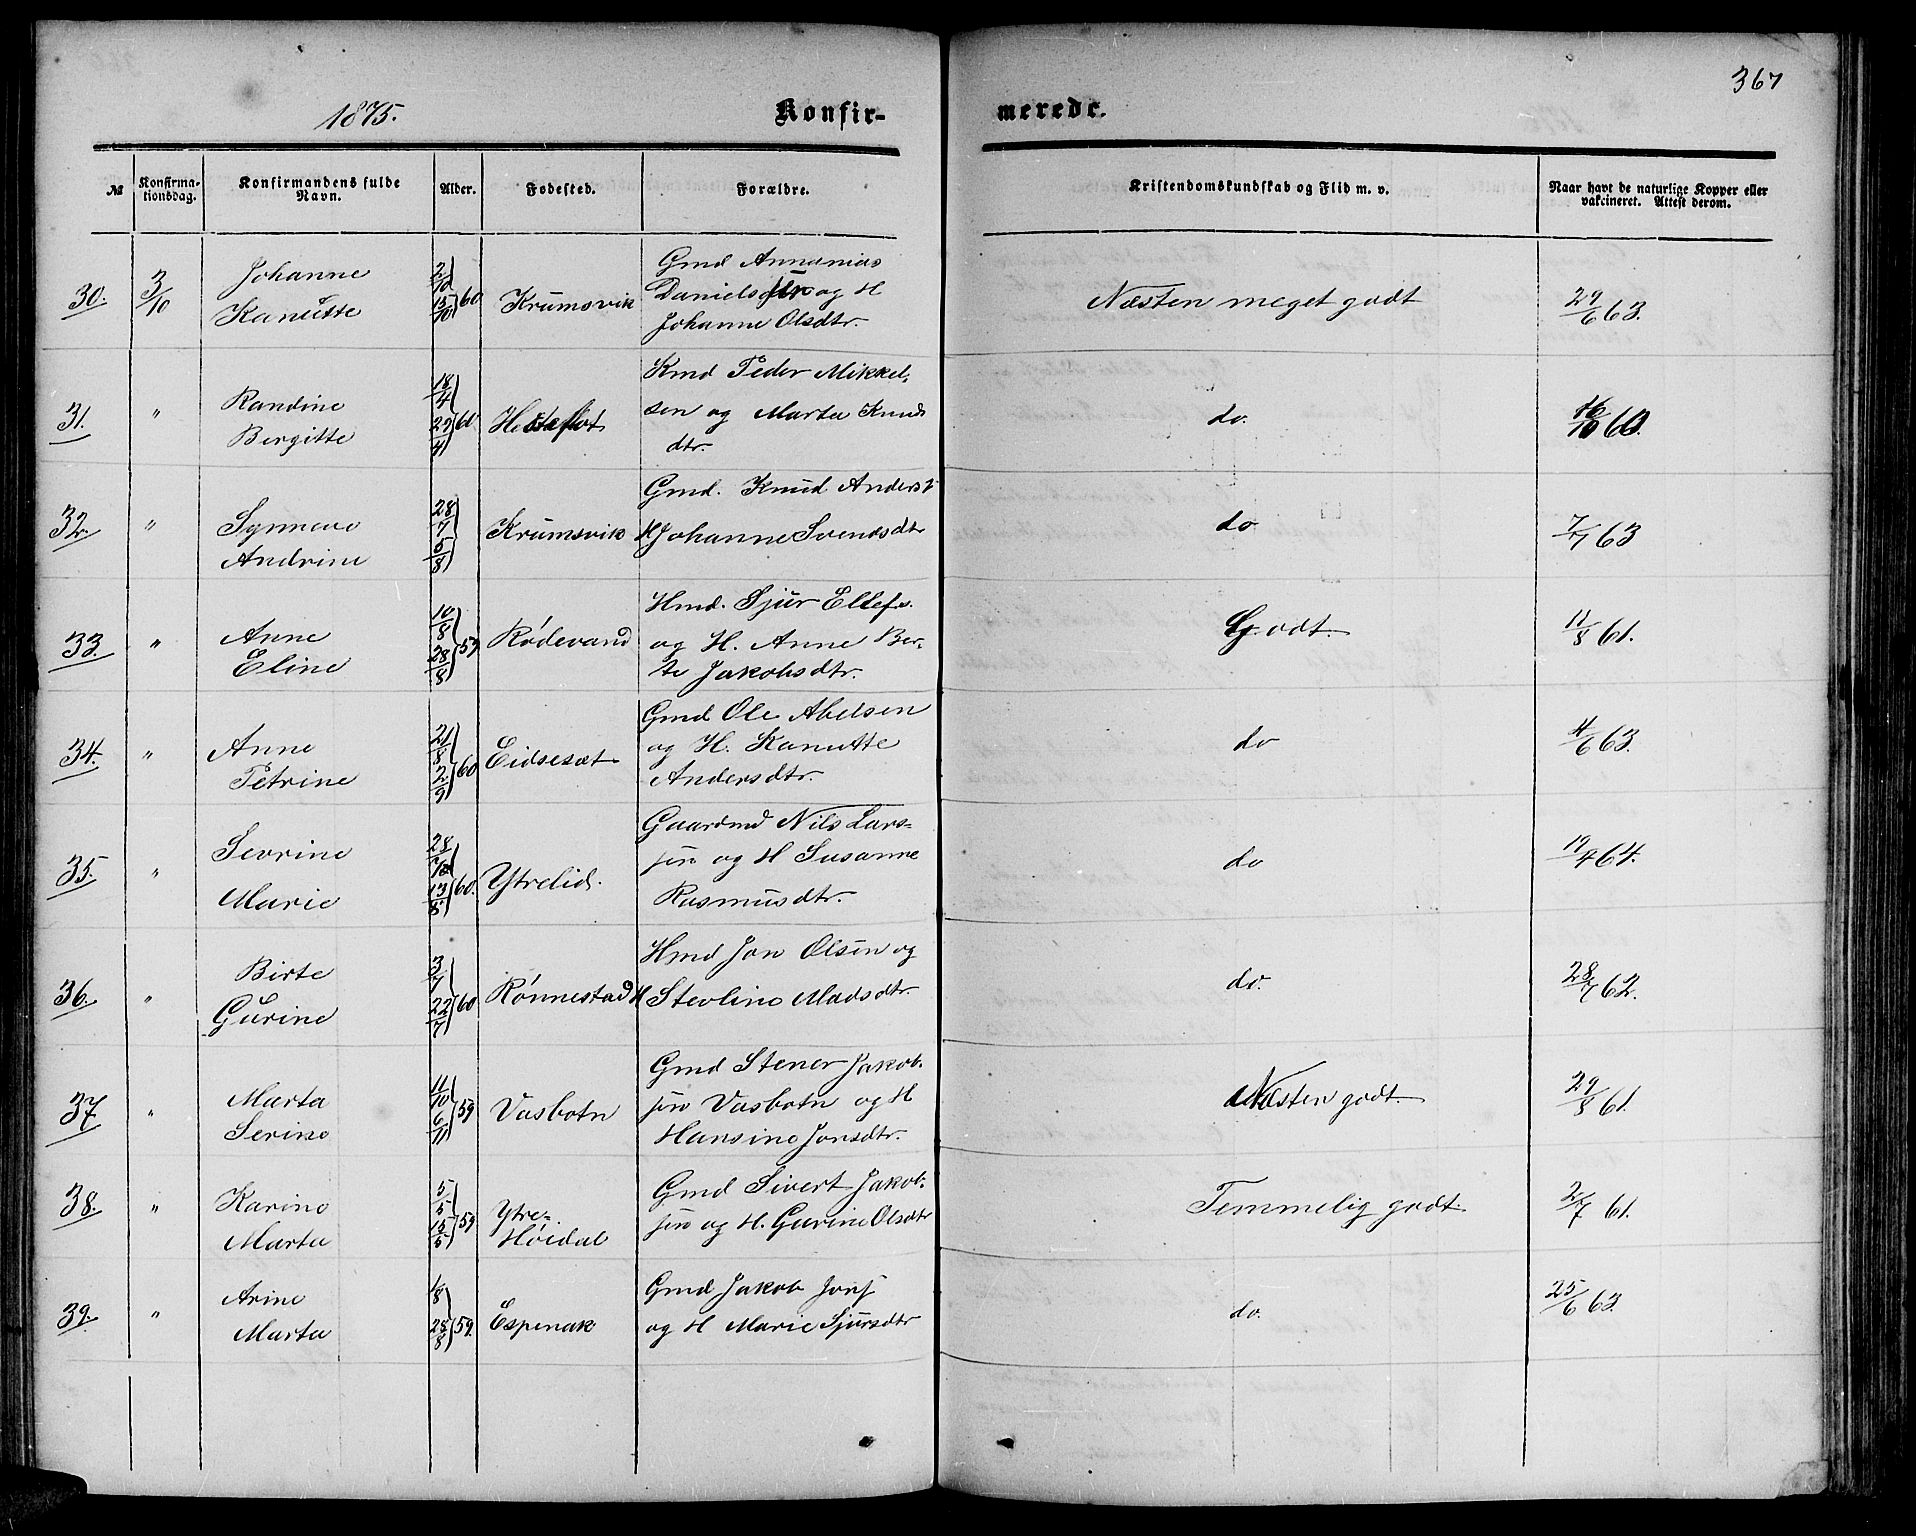 367
1875.
Konfir-
merede.
№
Konfirma-
tionsdag.
Konfirmandens fulde
Navn.
Alder.
Fødested.
Forældre.
Kristendomskundskab og Flid m. v.
Naar havt de naturlige Kopper eller
vakcineret. Attest derom.
30. 3/10 Johanne Kanutte 2/10 15/10 60 Krumsvik
Gmd Annanias
Daniels og H
Johanne Olsdtr.
Næsten meget godt 29/6 63.
31. " Randine Bergitte 18/4 27/4 60
Kmd Peder Mikkel-
sen og Marta Knuds
dtr.
do. 60.
32. " Synneve Andrine 28/7 5/8 Krumsvik
Gmd. Knud Anders
H Johanne Svendsdtr
do 7/7 63
33. " Anne Eline 10/8 28/8 59 Rødevand
Hmd. Sjur Ellefs.
og H. Anne Ber-
te Jakobsdtr.
Godt. 11/8 61.
34. " Anne Petrine 21/8 2/9 60 Eidsesæt
Gmd Ole Abelsen
og H. Kanutte
Andersdtr.
do 4/6 63.
35. " Sevrine Marie 28/7 13/8 60. Ytrelid.
Gaardmd Nils Lars-
sen og H Susanne
Rasmusdtr.
do 64.
36. " Birte Gurine 3/7 22/7 60 Rønnestad
Hmd Jon Olsen og
H Stevline Madsdtr.
do. 28/7 62.
37 " Marta Serine 11/10 6/11 59 Vasbotn
Gmd Stener Jakob-
sen Vasbotn og H
Hansine Jonsdtr.
Næsten godt. 29/8 61.
38. " Karine Marta 5/5 15/5 59 Ytre-
Høidal
Gmd Sivert Jakob-
sen og H. Gurine Olsdtr
Temmelig godt. 2/7 61.
39. " Arine Marta 1/8 28/8 59. Espenak
Gmd Jakob Jons
og H Marie Sjursdtr
do. 25/6 63.